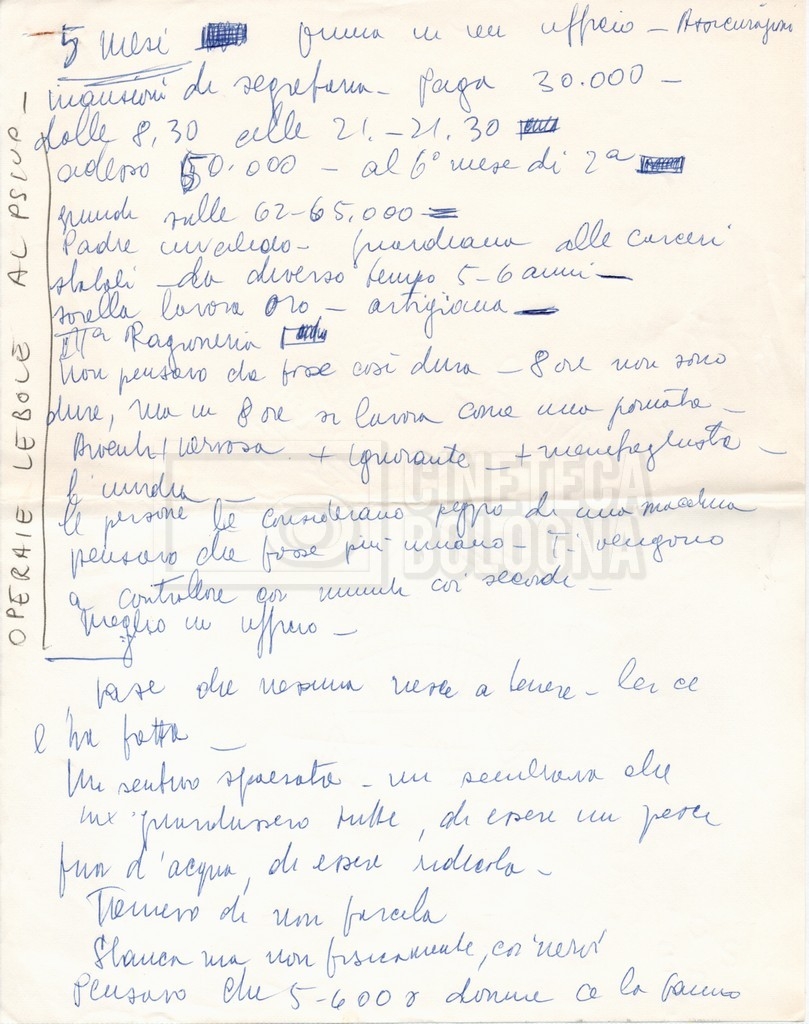 5 mesi prima in un ufficio - Assicurazioni
mansioni di segretaria - Paga 30.000 -
dalle 8,30 alle 21.-21.30
adesso 50.000 - al 6° mese di 2a
quindi sulle 62-65.000 =
Padre invalido - guardiana alle carceri
statali - da diverso tempo 5-6 anni -
sorella lavora oro - artigiana -
IIIa Ragioneria
Non pensavo che fosse così dura - 8 ore non sono
dure, ma in 8 ore si lavora come una giornata -
Diventi nervosa + ignorante - + menefreghista -
L'invidia
le persone le considerano peggio di una macchina
pensavo che fosse più umano - Ti vengono
a controllare coi minuti coi secondi -
Meglio in ufficio -
fase che nessuna riesce a tenere - lei ce
l'ha fatta -
Mi sentivo spaesata - mi sembrava che
mi guardassero tutte, di essere un pesce
fuor d'acqua, di essere ridicola -
Temevo di non farcela
Stanca ma non fisicamente, coi nervi
Pensavo che 5-600 donne ce la fanno
OPERAIE LEBOLE AL PSIUP -
CINETECA
BOLOGNA